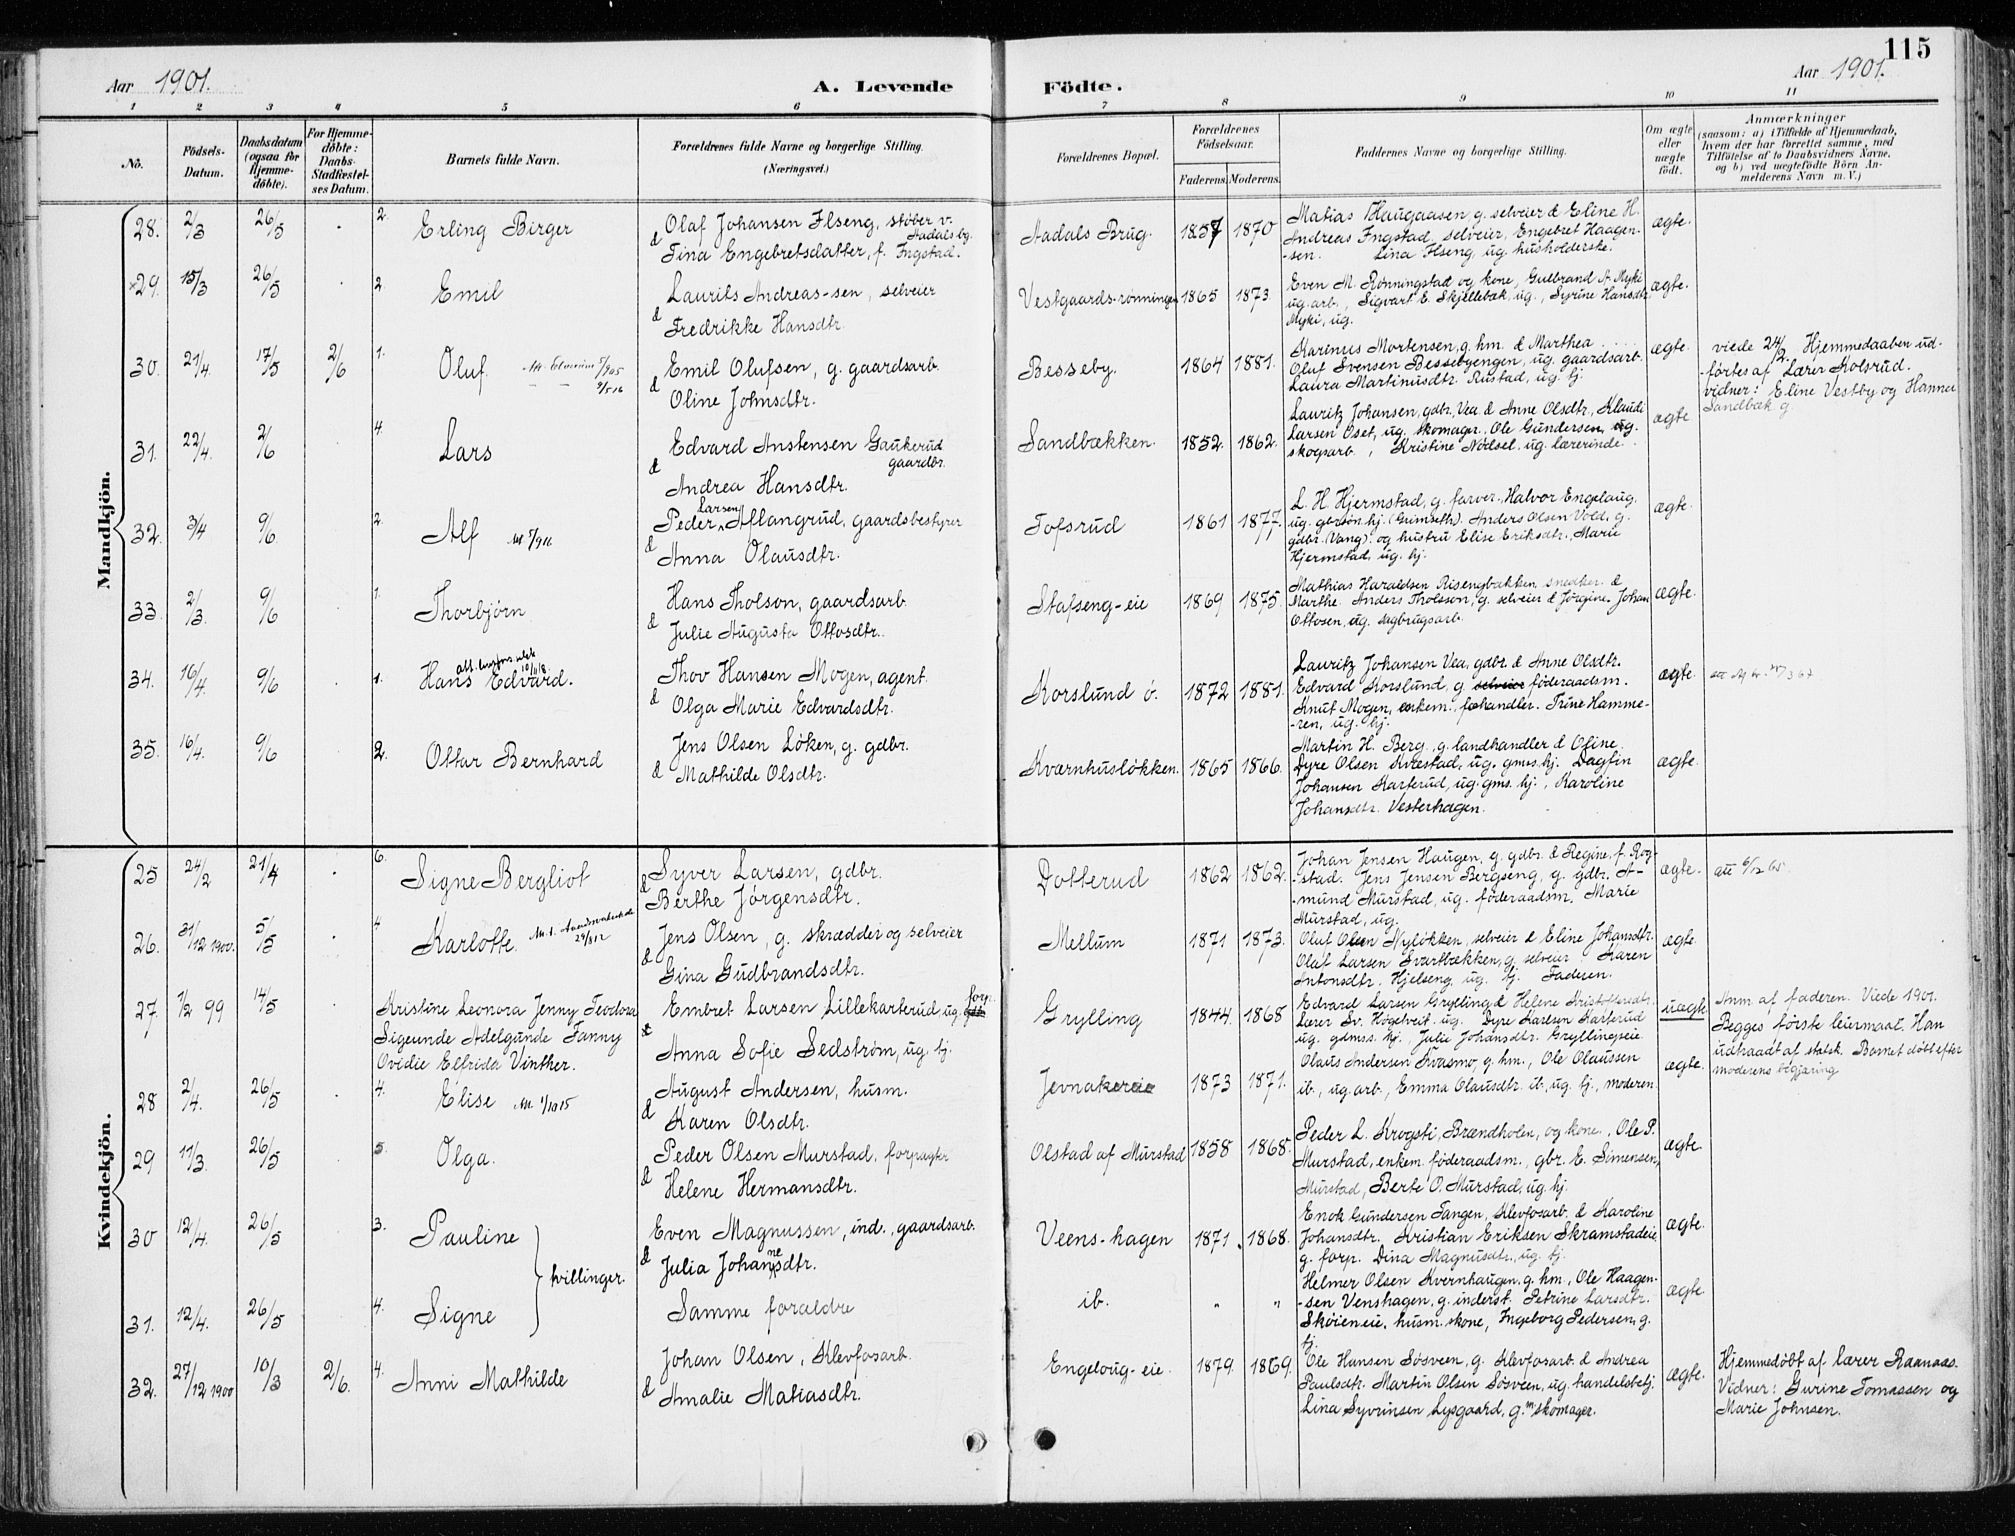 115
Aar 1901.
A. Levende
Födte.
Aar 1901.
1 2 3 4 5 6 7 8 9 10 11
No.
Födsels-Datum.
Daabsdatum (ogsaa for Hjemmedöbte).
For Hjemmedöbte: Daabs-Stadfæstelses Datum.
Barnets fulde Navn.
Forældrenes fulde Navne og borgerlige Stilling.
(Næringsvei.)
Forældrenes Bopæl.
Forældrenes Födselsaar.
Faderens. Moderens.
Faddernes Navne og borgerlige Stilling.
Om ægte eller uægte födt.
Anmærkninger
(saasom: a) i Tilfælde af Hjemmedaab, hvem der har forrettet samme, med Tilföielse af to Daabsvidners Navne, og b) ved uægtefödte Börn Anmelderens Navn m. V.)
Mandkjön.
28. 2/3 26/5 . 2. Erling Birger
Olaf Johansen Ilseng, støber v. Aadals bg.
& Tina Engebretsdatter, f. Ingstad.
Aadals Brug. 1857 1870
Matias Haugaasen, g. selveier & Eline H.
Andreas Ingstad, selveier, Engebret Haagen-
-sen. Lina Ilseng ug. husholderske.
ægte.
29. 15/3 26/5 . 2. Emil
Laurits Andreas-sen, selveier
& Fredrikke Hansdtr.
Vestgaards-rønningen 1865 1873
Even M. Rønningstad og kone, Gulbrand A. Myki
ug. arb., Sigvart E. Skjellebæk, ug., Syrine Hansdtr.
Myki, ug.
ægte.
30. 21/4. 17/5 2/6 1. Oluf.
Emil Olufsen, g. gaardsarb.
& Oline Johnsdtr.
Besseby. 1864 1881.
Karinus Mortensen, g. hm. & Marthea
Oluf Svensen Bessebyengen, ug. gaardsarb.
Laura Martinusdtr. Rustad, ug. hj.
ægte.
viede 24/2. Hjemmedaaben ud-
-førtes af Lærer Kolsrud.
vidner: Eline Vestby og Hanna
Sandbæk g.
31. 22/4. 2/6 . 4. Lars
Edvard Anstensen Gaukerud
gaardbr.
& Andrea Hansdtr.
Sandbækken. 1852. 1862.
Lauritz Johansen, gdbr. Vea & Anne Olsdtr., Klaudi
Larsen Oset, ug. skomager. Ole Gundersen, ug.
skogsarb., Kristine Nødsel. ug. lærerinde.
ægte
32. 3/4 9/6 . 2. Alf
Peder Larsen Aflangrud, gaardsbestyrer
& Anna Olausdtr.
Tofsrud 1861 1877.
L. H. Hjermstad, g. farver. Halvor Engelaug,
ug. gbrsøn. hj. (Grimseth). Anders Olsen Vold, g.
gdbr. (Vang). og hustru Elise Eriksdtr., Marie
Hjermstad, ug. hj.
ægte.
33. 2/3. 9/6 . 1. Thorbjørn
Hans Tholson, gaardsarb
& Julie Augusta Ottosdtr.
Stafseng-eie 1869 1875.
Mathias Haraldsen Risengbakken, snedker. &
Marthe. Anders Tholsson, g. selveier & Jørgine. Johan
Ottosen, ug. sagbrugsarb.
ægte.
34. 16/4. 9/6 . 1. Hans Edvard.
Thov Hansen Mogen, agent.
& Olga Marie Edvardsdtr.
Korslund ö. 1872 1881.
Lauritz Johansen Vea, gdbr. & Anne Olsdtr.
Edvard Korslund, g. selveier føderaadsm.
Knut Mogen, enkem. forhandler. Trine Hamme-
-ren, ug. hj.
ægte.
35. 16/4. 9/6 . 2. Ottar Bernhard
Jens Olsen Løken, g. gdbr.
& Mathilde Olsdtr.
Kværnhusløkken. 1865 1866.
Martin H. Berg, g. landhandler & Oline.
Dyre Olsen Kvæstad, ug. gmss. hj. Dagfin
Johansen Karterud, ug. gms. hj., Karoline
Johansdtr. Vesterhagen.
ægte.
Kvindekjön.
25 24/2 21/4 . 6. Signe Bergliot
Syver Larsen, gdbr.
& Berthe Jørgensdtr.
Dotterud 1862 1862.
Johan Jensen Haugen, g. gdbr. & Regine, f. Rog-
-stad. Jens Jensen Bergseng, g. gdbr. A-
-mund Murstad, ug. føderaadsm. Marie
Murstad, ug.
ægte.
26. 31/12 1900. 5/5 . 4 Karlotte.
Jens Olsen, g. skrædder og selveier
& Gina Gudbrandsdtr.
Mellum 1871 1873.
Oluf Olsen Nyløkken, selveier & Eline Johansdtr.
Olaf Larsen Svartbækken, g. selveier Karen
Antonsdtr. Hjelseng ug. hj. Faderen.
ægte.
27. 1/2 99 14/5 . Kristine Leonora Jenny Teodora
Sigeunde Adelgunde Fanny
Ovidie Elfrida Vinther.
Embret Larsen Lillekarterud ug. forp.
& Anna Sofie Sedstrøm, ug. hj.
Grylling 1844. 1868
Edvard Larsen Grylling & Helene Kristoffersdtr.
Lærer Sv. Høgetveit. ug. Dyre Karlsen Karterud
ug. gdmss. hj., Julie Johansdtr. Gryllingseie.
uægte
Anm. af faderen. Viede 1901.
Begges første leiermaal. Han
udtraadt af statsk. Barnet døbt efter
moderens begjæring
28 2/4. 26/5 . 4. Elise
August Andersen, husm.
& Karen Olsdtr.
Jevnakereie 1873 1871.
Olaus Andersen Kvasmo, g. hm., Ole Olaussen
ib., ug. arb., Emma Olausdtr. ib., ug. hj., moderen.
ægte.
29 11/3. 26/5 . 5. Olga.
Peder Olsen Murstad, forpagter
& Helene Hermansdtr.
Olstad af Murstad 1858 1868.
Peder L. Krogsti, Brændholen, og kone., Ole P.
Murstad, enkem. føderaadsm., gbr. E. Simensen,
Murstad, Berte O. Murstad, ug. hj.
ægte.
30 12/4. 26/5 . 3. Pauline
tvillinger.
Even Magnussen, ind., gaardsarb.
& Julia Johannesdtr.
Veens-hagen 1871. 1868.
Enok Gundersen Tangen, Klevfosarb. & Karoline
Johansdtr. Kristian Eriksen Skramstadeie
g. forp. Dina Magnusdtr., ug. hj.
ægte.
31. 12/4. 26/5 . 4. Signe
Samme foræld­re
ib. " "
Helmer Olsen Kvernhaugen, g. hm., Ole Haagen-
-sen Venshagen, g. inderst. Petrine Larsdtr.
Skøieneie. husm. skone, Ingeborg Pedersen, g.
hj.
ægte.
32. 27/12 1900 10/3 2/6. 4. Anni Mathilde
Johan Olsen, Klevfosarb.
& Amalie Matiasdtr.
Engeloug-eie. 1879. 1869.
Ole Hansen Søsveen, g. Klevfosarb. & Andrea
Paulsdtr. Martin Olsen Søsveen, ug. handelsbetj.
Lina Syvrinsen Lysgaard, g. m skomager.
ægte.
Hjemmedøbt af lærer Raanaas.
Vidner: Gurine Tomassen og
Marie Johnsen.